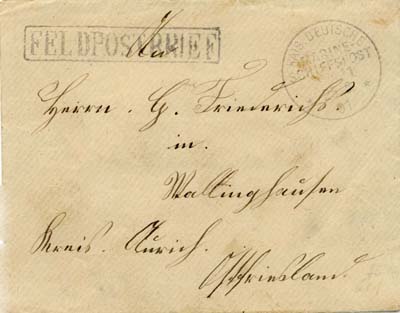 FELDPOSTBRIEF
An
KAIS. DEUTSCHE
MARINE-
SCHIFFSPOST
Herrn G. Friederichs
in.
Wallinghausen
Kreis. Aurich.
Ostfriesland.